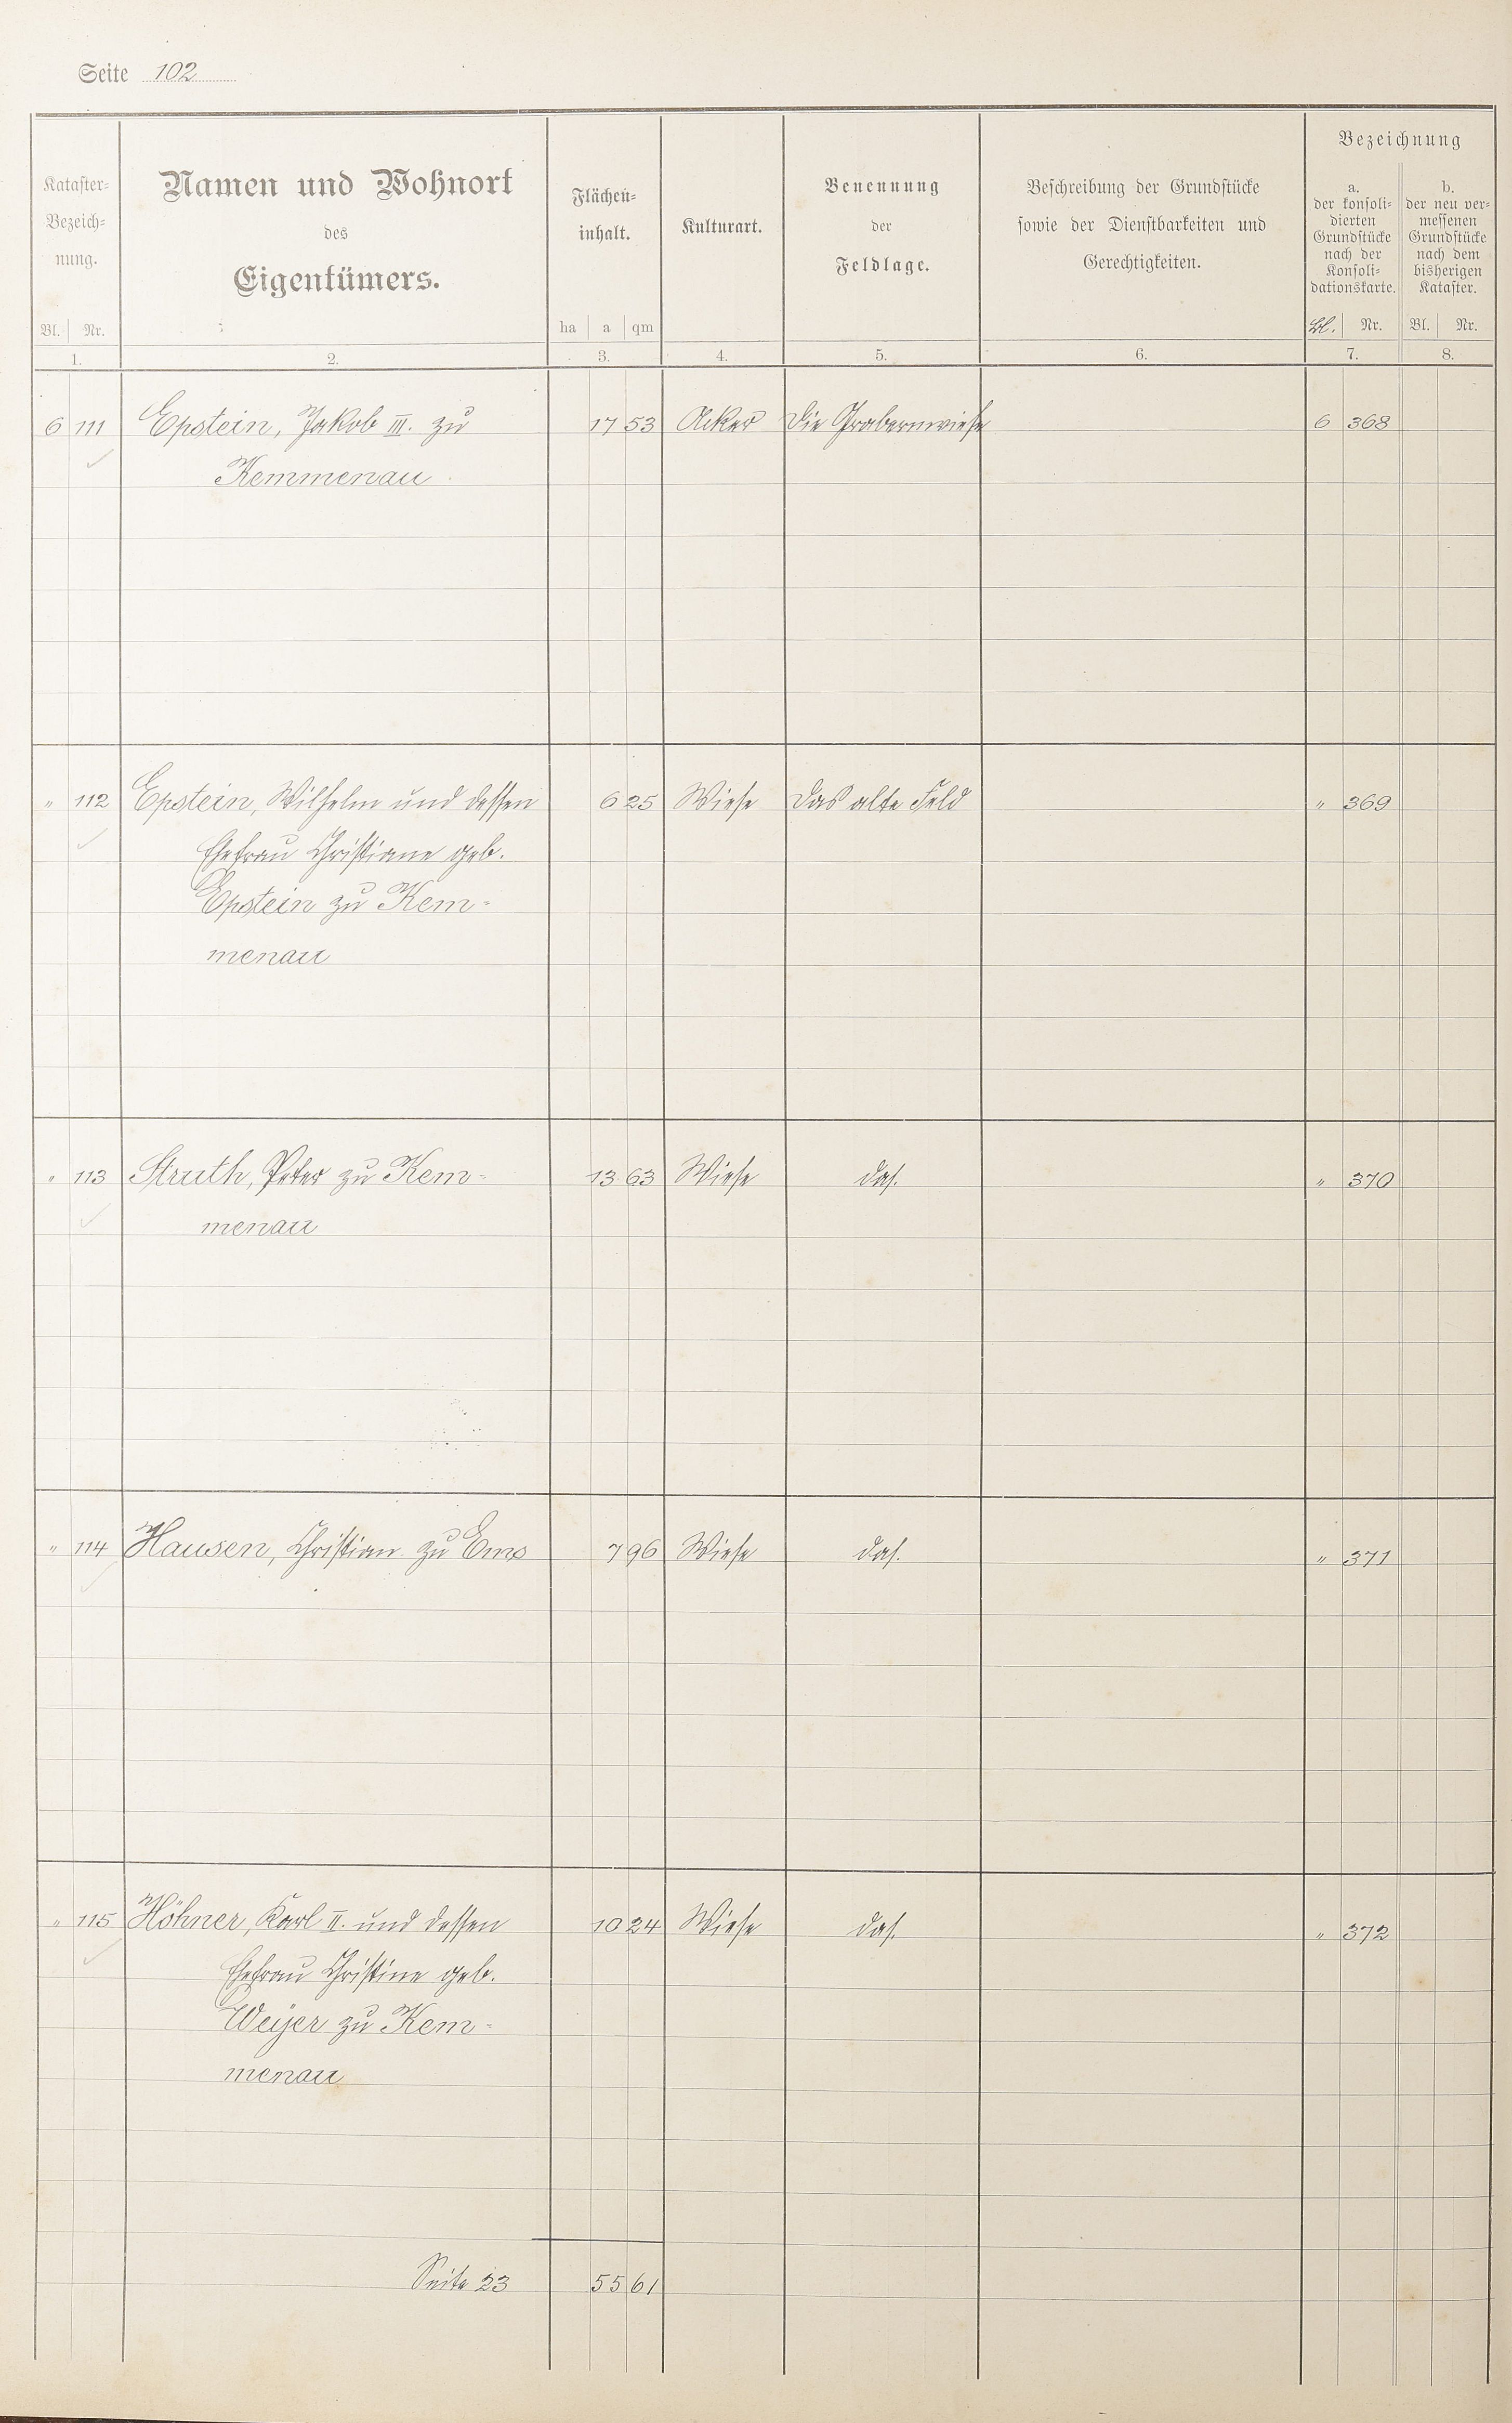 Seite 102
Bezeichnung
Kataster-
Bezeich-
nung.
Namen und Wohnort
des
Eigentümers.
Flächen-
inhalt.
Kulturart.
Benennung
der
Feldlage.
Beschreibung der Grundstücke
sowie der Dienstbarkeiten und
Gerechtigkeiten.
a.
der konsoli-
dierten
Grundstücke
nach der
Konsoli-
dationskarte.
b.
der neu ver-
messenen
Grundstücke
nach dem
bisherigen
Kataster.
Bl. Nr. ha a qm Bl. Nr. Bl. Nr.
1. 2. 3. 4. 5. 6. 7. 8.
6 111 Epstein, Jakob III. zu 17 53 Acker Die Grabenwiese 6 368
Kemmenau
" 112 Epstein, Wilhelm und dessen 6 25 Wiese Das alte Feld " 369
Ehefrau Christiane geb.
Epstein zu Kem-
menau
" 113 Struth, Peter zu Kem- 13 63 Wiese das. " 370
menau
" 114 Hausen, Christian zu Ems 7 96 Wiese das. " 371
" 115 Höhner, Karl II. und dessen 10 24 Wiese das. " 372
Ehefrau Christine geb.
Weyer zu Kem-
menau
Seite 23 55 61